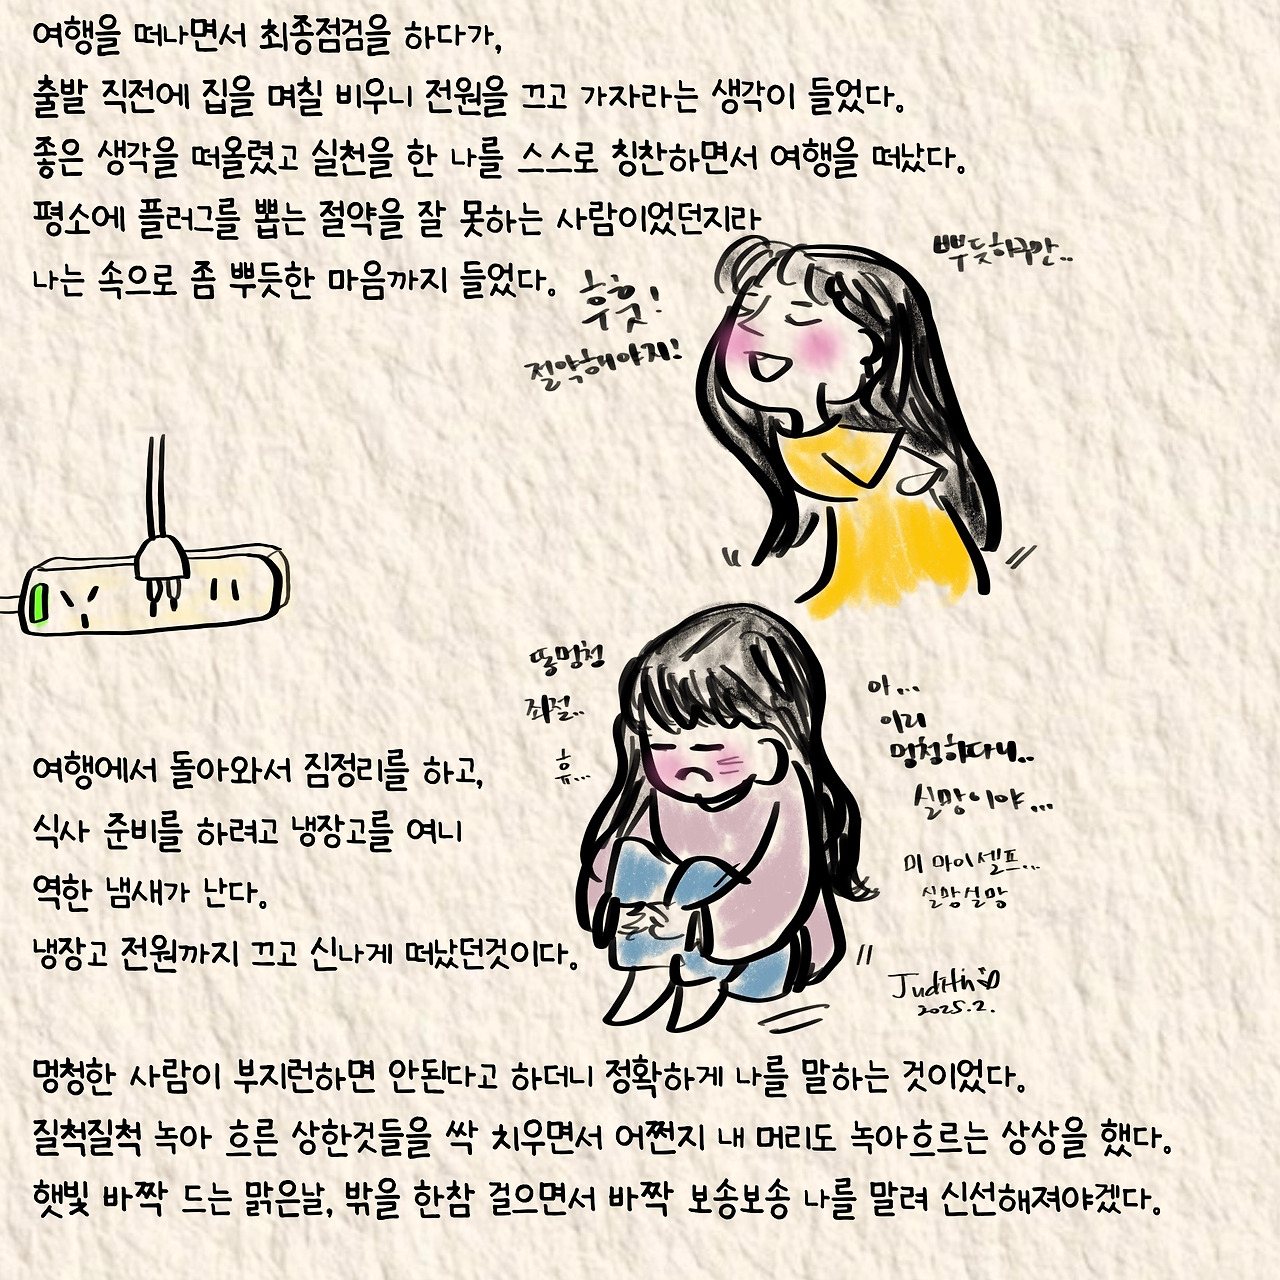 여행을 떠나면서 최종점검을 하다가,
출발 직전에 집을 며칠 비우니 전원을 끄고 가자라는 생각이 들었다.
좋은 생각을 떠올렸고 실천을 한 나를 스스로 칭찬하면서 여행을 떠났다.
평소에 플러그를 뽑는 절약을 잘 못하는 사람이었던지라
나는 속으로 좀 뿌듯한 마음까지 들었다.
뿌듯하구만..
후훗!
절약해야지!
똥멍청
좌절..
휴...
아...
이리
멍청하다니..
실망이야...
미 마이셀프...
실망실망
여행에서 돌아와서 짐정리를 하고,
식사 준비를 하려고 냉장고를 여니
역한 냄새가 난다.
냉장고 전원까지 끄고 신나게 떠났던것이다.
Judith
2025.2.
멍청한 사람이 부지런하면 안된다고 하더니 정확하게 나를 말하는 것이었다.
질척질척 녹아 흐른 상한것들을 싹 치우면서 어쩐지 내 머리도 녹아흐르는 상상을 했다.
햇빛 바짝 드는 맑은날, 밖을 한참 걸으면서 바짝 보송보송 나를 말려 신선해져야겠다.